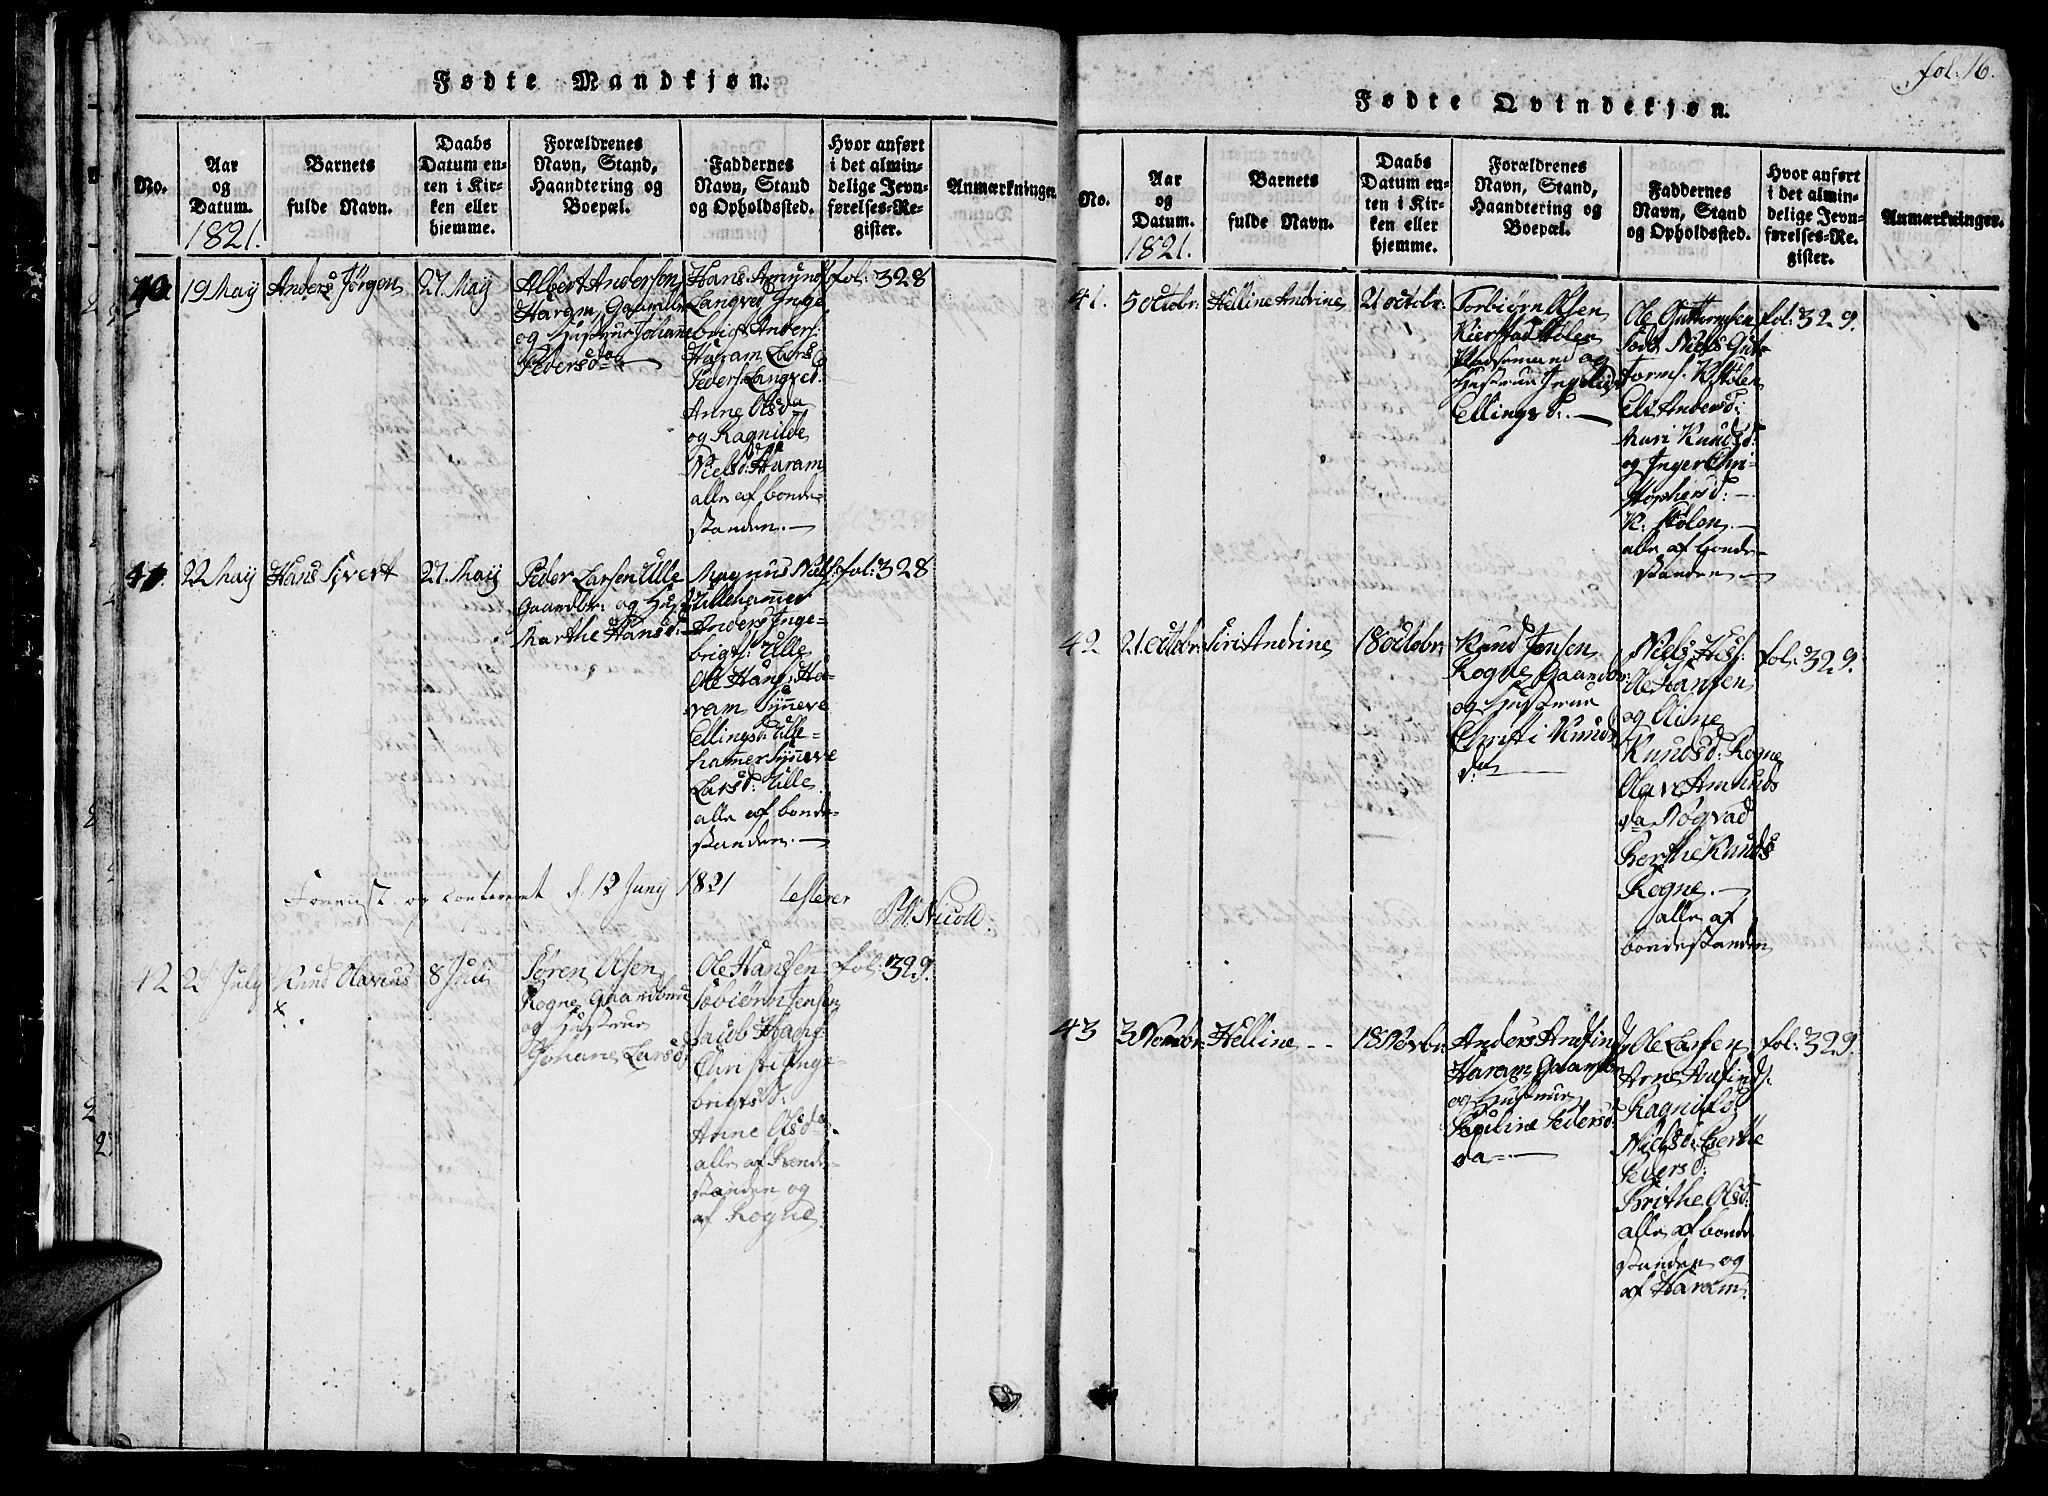 Fødte Mandkjøn.
No.
Aar
og
Datum.
1821.
Barnets
fulde Navn.
Daabs
Datum en-
ten i Kir-
ken eller
hjemme.
Forældrenes
Navn, Stand,
Haandtering og
Boepæl.
Faddernes
Navn, Stand
og Opholdssted.
Hvor anført
i det almin-
delige Jevn-
førelses-Re-
gister.
Anmærkninger
40
19 Maij
Anders Jørgen
27. Maij
Albert Andersen
Haram Gaardbr
og Hustrue Johane
Pedersda
Hans Amunds
Langved Inge
brigt Anders:
Haram Lars
Peders: Langved.
Anne Olsda
og Ragnilde
Nielsd: Haram
alle af bonde-
standen.
fol: 328
41
22 Maij
Hans Sivert
27. Maij
Peder Larsen Ulle
Gaardbr: og Hust
Marthe Hansd:
Magnus Niels:
Ullehammer
Anders Inge-
brigts: Ulle
Ole Hans: Ha-
ram Synneve
Ellingsd: Ulle-
hamer Synneve
Larsd: Ulle
alle af bonde-
standen.
fol: 328
og conferert d. 12 Juny 1821
12
2 July
Knud Olavius
x
8 Juli
Søren Olsen
Rogne Gaardbru
og Hustrue
Johane Larsd
Ole Hansen
Torbiørn Jensen
Jacob Hans:
Christi Inge-
brigtsd:
Anne Olsda.
alle af bonde-
standen og
af Rogne
fol: 329.
fol: 16.
Fødte Qvindekjøn.
No.
Aar
og
Datum.
1821.
Barnets
fulde Navn.
Daabs
Datum en-
ten i Kir-
ken eller
hjemme.
Forældrenes
Navn, Stand,
Haandtering og
Boepæl.
Faddernes
Navn, Stand
og Opholdssted.
Hvor anført
i det almin-
delige Jevn-
førelses-Re-
gister.
Anmærkninger.
41.
5 octobr:
Helline Andrine
21 octobr:
Torbiørn Olsen
Kierstad Stolen
Pladsemand og
Hustrue Ingeborg
Ellingsd:
Ole Guttormsen
Niels Gut-
torms: K: Stolen
Eli Andersd:
Mari Knudsd:
og Inger Chri-
stophersd:
K: Stolen.
alle af bonde-
standen
fol: 329.
42
21. Octobr:
Siri Andrine
18 octobr:
Knud Jensen
Rogne Gaardbr:
og Hustrue
Christi Knuds
da
Ole Hansen
og Oline
Knudsd: Rogne
Olave Amunds
da Røgvad
Berthe Knuds
Rogne.
alle af
bondestanden
fol: 329.
43
3 Novbr:
Helline
18 Novbr:
Anders Andfind
Haram Gaardbr
og Hustrue
Pauline Pedersd:
da
Ole Larsen
Arne Anfinds.
Ragnild
Nielsd: Berthe
Pedersd:
Brithe Olsd:
alle af bonde
standen og
af Haram.
fol: 329.